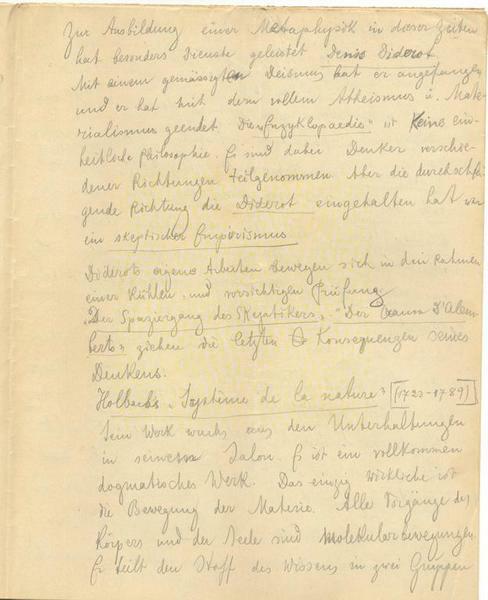 Zur Ausbildung einer Metaphysik in dieser Zeiten
hat besonders Dienste geleistet Denis Diderot
Mit einem gemässigten Deismus hat er angefangen
und er hat mit dem vollem Atheismus u. Mate-
rialismus geendet. Die „Enzyklopaedie" ist keine ein-
heitliche Philosophie. Es sind dabei Denker verschie-
dener Richtungen teilgenommen. Aber die durchschla-
gende Richtung die Diderot eingehalten hat war
ein skeptischer Empirismus.
Diderots eigene Arbeiten bewegen sich in den Rahmen
einer kühlen und vorsichtigen Prüfung.
„Der Spaziergang des Skeptikers", "Der Traum D'Alem-
berts" ziehen die letzten Konsequenzen seines
Denkens.
Holbachs „Système de la nature" [(1723-1789)]
Sein Werk wuchs aus den Unterhaltungen
in seinem Salon. Es ist ein vollkommen
dogmatisches Werk. Das einzig wirkliche ist
die Bewegung der Materie. Alle Vorgänge des
Körpers und der Seele sind Molekularbewegungen.
Er teilt den Stoff des Wissens in zwei Gruppen